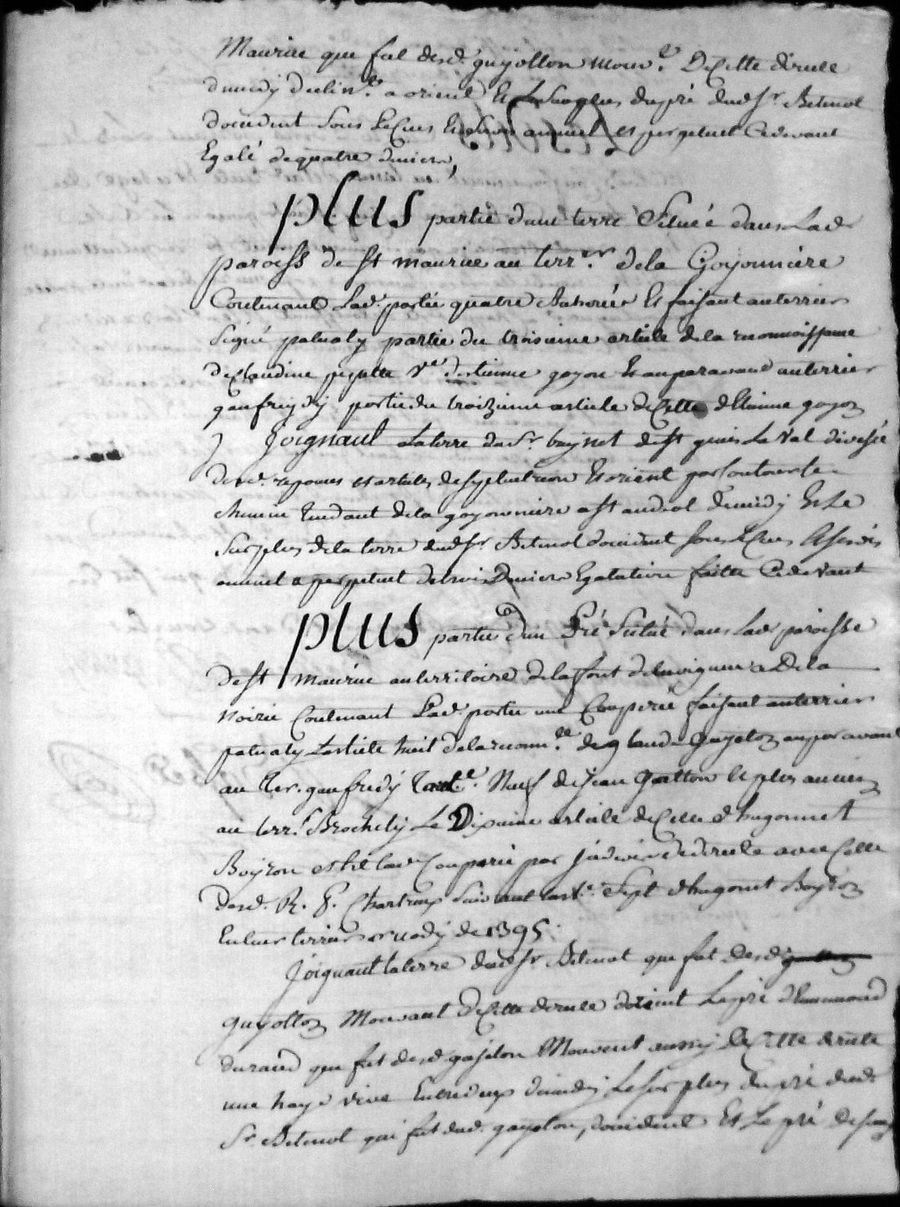 Maurice que fut desd. guyotton mouv.t De Cette directe
du midy declin.t a orient Et Le Surplus du pré dud. Sr. Betmot
doccident Sous Le Cens Et Servis annuel et perpetuel Cy devant
Egalé de quatre deniers,
PLUS partie d'une terre Scituée dans Lad.
paroiss de St maurice au terr.re de la Goyonniere
Contenant Lad. partie quatre Bichorées Et faisant au terrier
Signé paluaty partie du troisieme article de la reconnoissance
de Claudine peyatte Ve d'estienne goyon Et auparavand au terrier
gaufreydy partie du troizieme article de Cette d'Etienne goyon
Joignant La terre du Sr. de St Le Val divisée
Desd. reponces et articles des Et orient par toute
Chemin tendant de la goyonniere a St andeol de midy Et Le
Surplus de la terre dud. Sr. Betmot doccident Sous Le Cens Et Servis
annuel et perpetuel de trois Deniers Egalation faitte Cy devant
PLUS partie d'un Pré Scitué dans Lad. paroisse
De St maurice au territoire de la font de Et De la
Noirie Contenant Lad. partie une Couperie faisant au terrier
paluaty L'article huit de la reconn.ce de Claude Gayeton auparavant
au Ter. gaufredy L'art.e Neuf de Jean Gatton Et plus ancien
au terr. Brochety Le Dixieme article de Celle d'hugonnet
Boyron et lad. Couperie par Jndivis De directe avec Celle
Desd. R. P. Chartreux Suivant L'art.e Sept d'hugonet Boyron
En Leur terrier de 1395.
Joignant La terre dud. Sr. Betmot que fut Desd.
guyotton Mouvant De Cette directe d'orient Le pré d'Emmond
durand que fut desd. gayeton Mouvent aussy De Cette directe
une haye vive Entredeux de midy Le Surplus du pré dud.
Sr. Betmot qui fut dud. gayeton, doccident Et Le pré de Jean